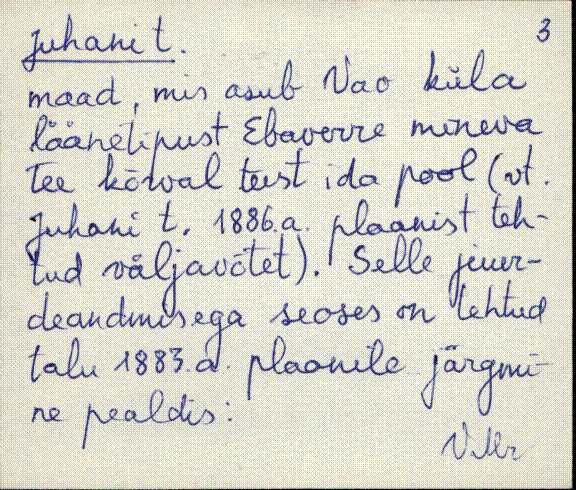 3
Juhani t.
maad, mis asub Vao küla
läänetipust Ebaverre mineva
tee kõrval teest ida pool (vt.
Juhani t. 1886.a. plaanist teh-
tud väljavõtet). Selle juur-
deandmisega seoses on tehtud
talu 1883.a. plaanile järgmi-
ne pealdis: